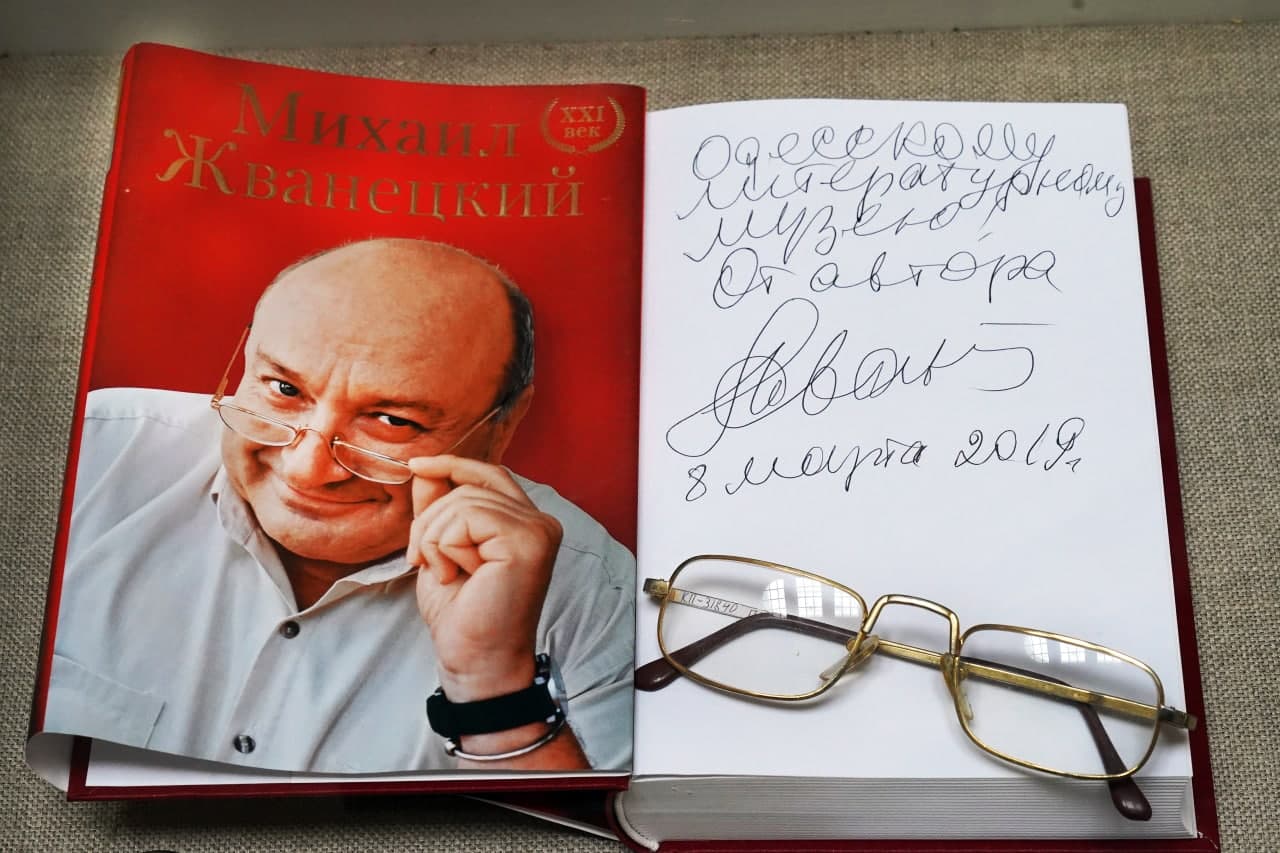 Михаил
Жванецкий
XXI
век
Одесскому
литературному
музею!
От автора
8 марта 2019г